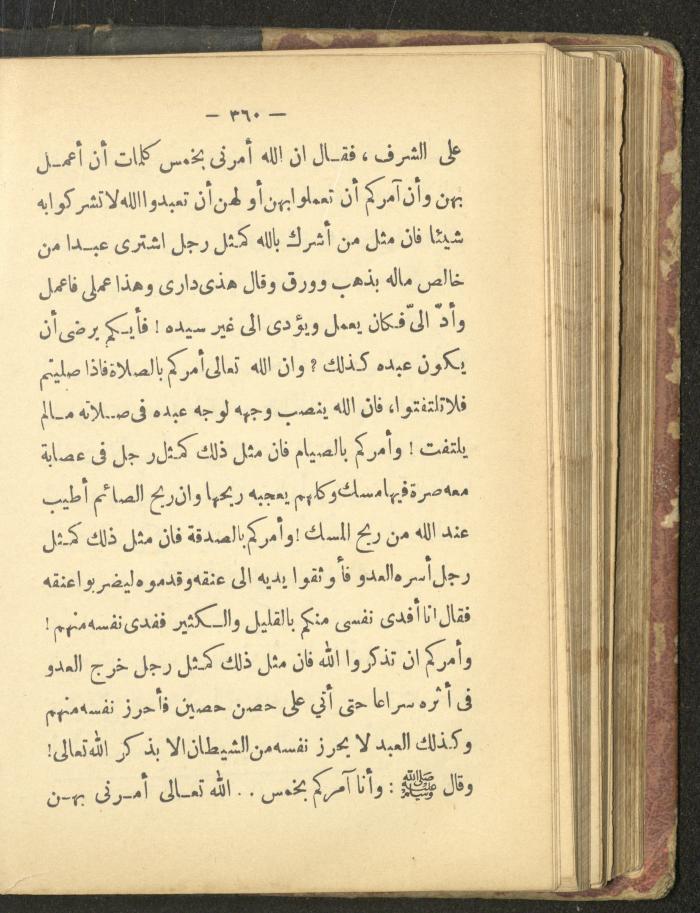 — ٣٦٠ —
على الشرف ، فقال ان الله أمرنى بخمس كلمات أن أعمل
بهن وأن آمركم أن تعملوا بهن أو لهن أن تعبدوا الله لا تشركوا به
شيئا فان مثل من أشرك بالله كمثل رجل اشترى عبدا من
خالص ماله بذهب وورق وقال هذى دارى وهذا عملى فاعمل
وأدّ الىّ فكان يعمل ويؤدى الى غير سيده ! فأيكم يرضى أن
يكون عبده كذلك ? وان الله تعالى أمركم بالصلاة فاذا صليتم
فلا تلتفتوا، فان الله ينصب وجهه لوجه عبده فى صلاته مالم
يلتفت ! وأمركم بالصيام فان مثل ذلك كمثل رجل فى عصابة
معه صرة فيها مسك وكلهم يعجبه ريحها وان ريح الصائم أطيب
عند الله من ريح المسك ! وأمركم بالصدقة فان مثل ذلك كمثل
رجل أسره العدو فأوثقوا يديه الى عنقه وقدموه ليضربوا عنقه
فقال انا أفدى نفسى منكم بالقليل والكثير ففدى نفسه منهم !
وأمركم ان تذكروا الله فان مثل ذلك كمثل رجل خرج العدو
فى أثره سراعا حتى أتي على حصن حصين فأحرز نفسه منهم
وكذلك العبد لا يحرز نفسه من الشيطان الا بذكر الله تعالى !
وقال ﷺ : وأنا آمركم بخمس . . الله تعالى أمرنى بهن